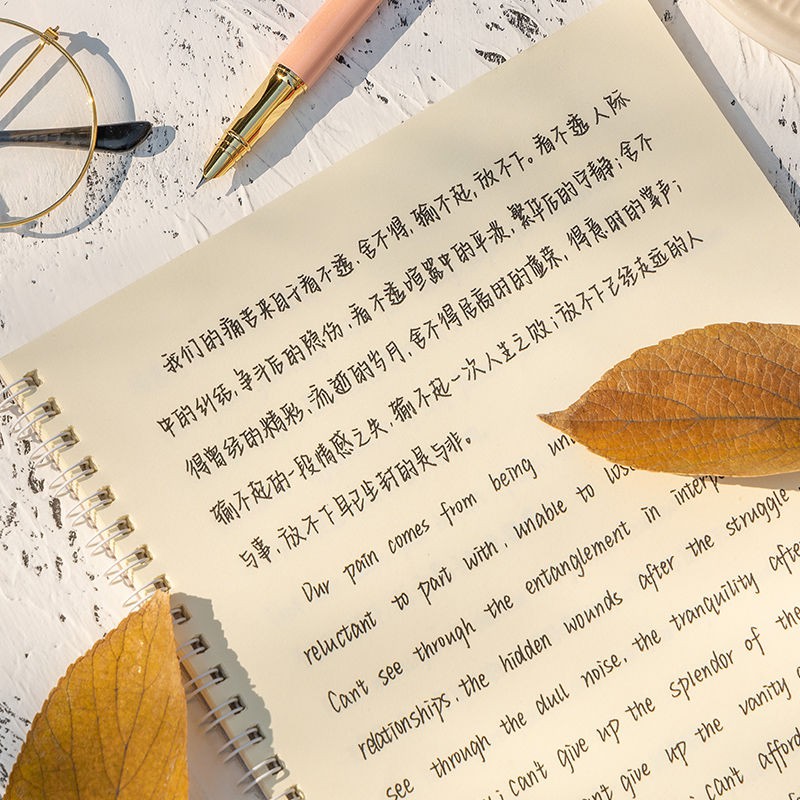 我们的痛苦来自于看不透,舍不得,输不起,放不下。看不透人际
中的纠结,争斗后的隐伤,看不透喧嚣中的平淡,繁华后的宁静;舍不
得曾经的精彩,流逝的岁月,舍不得居高时的虚荣,得意时的掌声;
输不起的一段情感之失,输不起一次人生之败;放不下已经走远的人
与事,放不下早已尘封的是与非。
Our pain comes from being
reluctant to part with, unable to
Can't see through the entanglement in
relationships, the hidden wounds after the struggle
see through the dull noise, the tranquility
can't give up the splendor of the
can't give up the vanity
can't afford